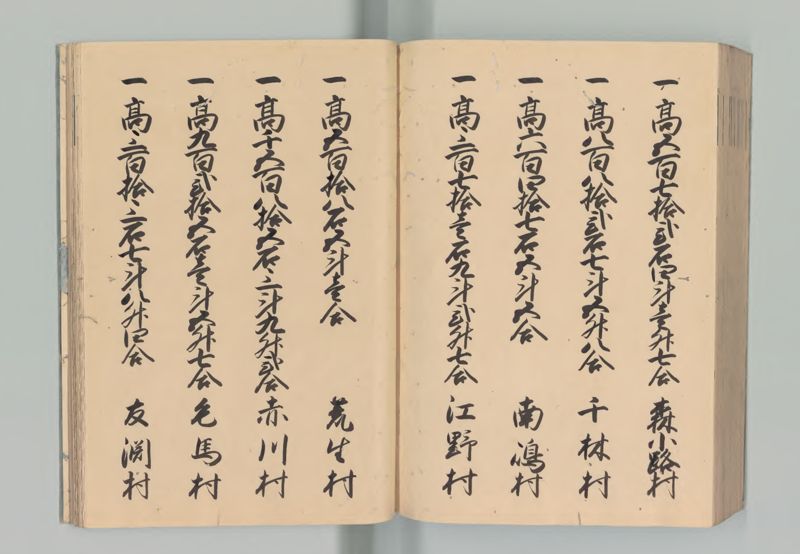 一高五百七拾弐石四斗壱升七合 森小路村
一高八百八拾弐石七斗五升八合 千林村
一高六百四拾七石五斗六合 南嶋村
一高三百七拾壱石九斗弐升七合 江野村
一高五百拾八石五斗壱合 荒生村
一高千五百八拾五石三斗九升弐合 赤川村
一高九百弐拾五石壱斗五升七合 毛馬村
一高三百拾三石七斗八升四合 友渕村